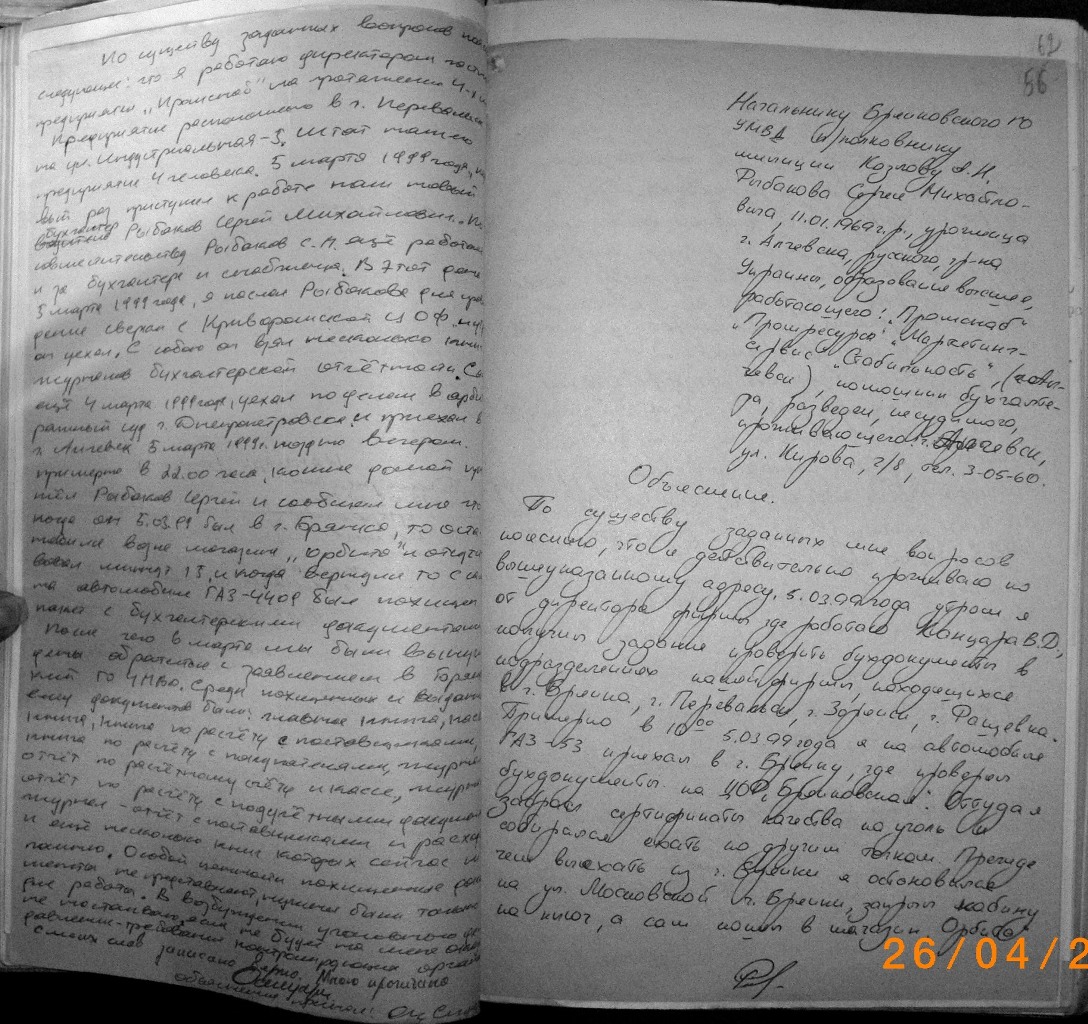 По существу заданных вопросов
следующее: что я работаю директором
предприятия „Промснаб" на протяжении
Предприятие расположено в г. Перевальск
на ул. Индустриальная-3. Штат нашего
предприятия 4 человека. 5 марта 1999 года,
вый раз приступил к работе наш новый
бухгалтер
Рыбаков Сергей Михайлович.
совместительству Рыбаков С.М. ещё работал
и за бухгалтера и снабженца. В этот день
5 марта 1999 года, я послал Рыбакова для
дение сверки с Криворожской ЦОФ, и
он уехал. С собой он взял несколько
журналов бухгалтерской отчётности.
ещё 4 марта 1999 года, уехал по делам в арби
ражный суд г. Днепропетровска и приехал в
г. Алчевск 5 марта 1999г. поздно вечером.
примерно в 22.00 часа, ко мне домой при
шёл Рыбаков Сергей и сообщил мне что
когда он 5.03.99 был в г. Брянка, то оста
новили возле магазина „Орбита" и отсутс
вовал минут 15, и когда вернулся то с
та автомобиля ГАЗ-4409 был похищен
папка с бухгалтерскими документами
После чего в марте мы были вынуж
дены обратиться с заявлением в Брян
кий ГО УМВД. Среди похищенных
документов были: главная книга, касс
книга, книга по расчёту с поставщиками,
книга по расчёту с покупателями, журнал
отчёт по расчётному счёту и кассе, журнал
отчёт по расчёту с подотчётными
журнал-отчёт с поставщиками и
и ещё несколько книг которых сейчас не
помню. Особой ценности похищенные доку
менты не представляют, нужны были только
для работы. В возбуждении уголовного дела
не настаиваю, если не будет на мне
давление-требования контролирующих органов
С моих слов записано верно. Мною прочитано
объяснение принял:
62
56
Начальнику Брянковского ГО
УМВД п/полковнику
милиции Козлову А.Н.
Рыбакова Сергея Михайло-
вича, 11.01.1969 г.р., уроженца
г. Алчевска, русского, гр-на
Украины, образование высшее,
работающего: „Промснаб"
„Промресурс" „Маркетинг-
сервис" „Стабильность",
помощник бухгалте-
ра, разведен, несудимого,
проживающего: г. Алчевск,
ул. Кирова, 2/8, тел. 3-05-60.
Объяснение.
По существу заданных мне вопросов
поясняю, что я действительно проживаю по
вышеуказанному адресу. 5.03.99 года утром я
от директора фирмы где работаю Канцара В.Д,
получил задание проверить бухдокументы в
подразделениях нашей фирмы, находящихся
в г. Брянка, г. Перевальск, г. Зоринск, г. Фащевка.
Примерно в 10⁰⁰ 5.03.99 года я на автомобиле
ГАЗ-53 приехал в г. Брянку, где проверял
бухдокументы на ЦОФ „Брянковская". Оттуда я
забрал сертификаты качества на уголь и
собирался ехать по другим точкам. Прежде
чем выехать из г. Брянки я остановился
на ул. Московской г. Брянки, закрыл кабину
на ключ, а сам пошел в магазин „Орбита"
26/04/2